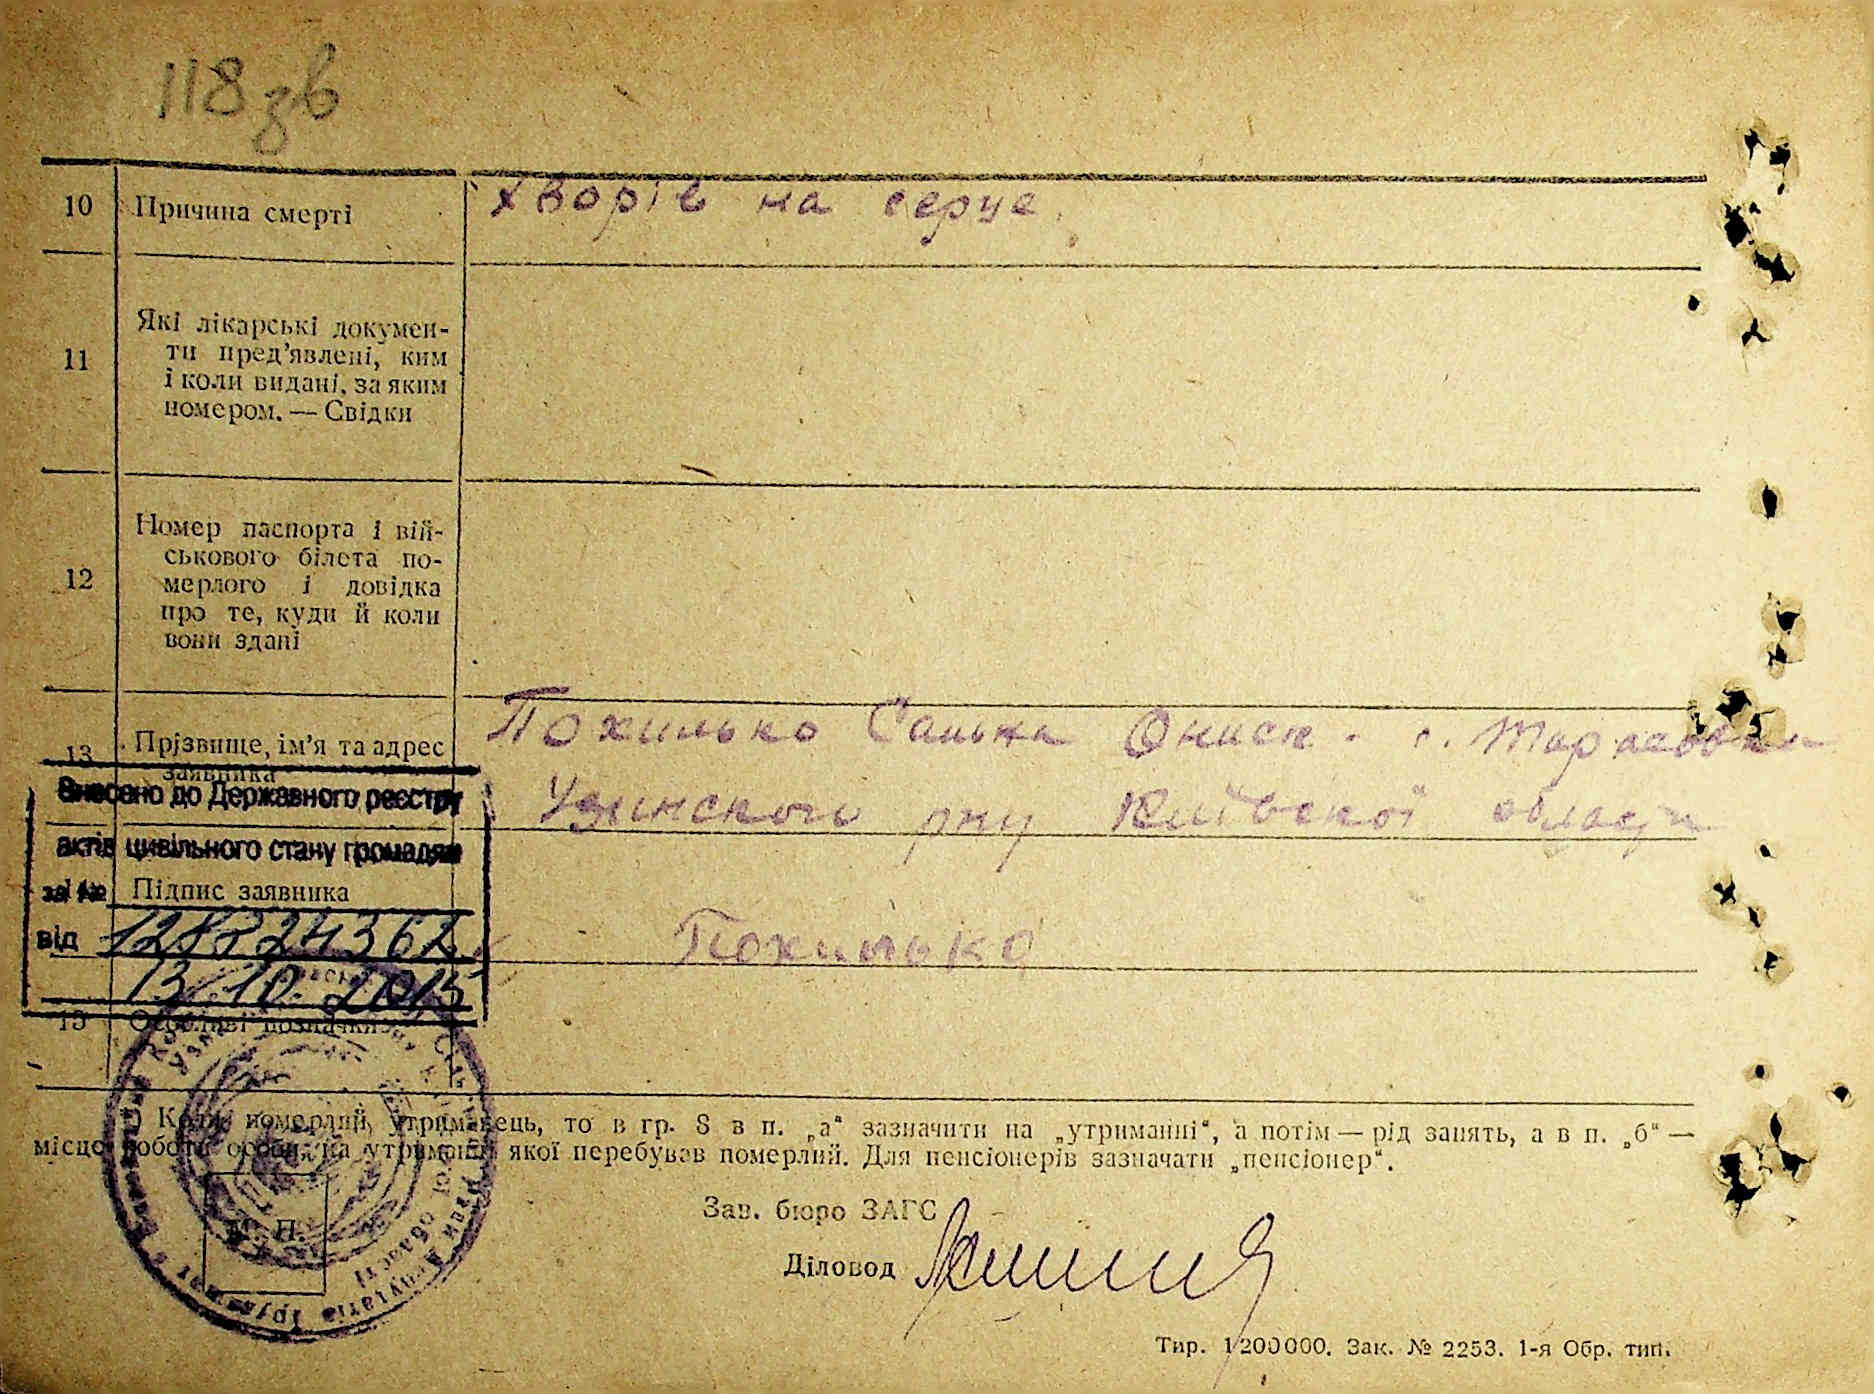 118 зв
10 Причина смерті хворів на серце.
11 Які лікарські документи
ти пред'явлені, ким
і коли видані, за яким
номером. — Свідки
12 Номер паспорта і вій-
ськового білета по-
мерлого і довідка
про те, куди й коли
вони здані
13 Прізвище, ім'я та адрес
заявника
Похилько Онися. с. Тарасовка
Узинского рну Київской области
Внесено до Державного реєстру
актів цивільного стану громадян
за №
Підпис заявника Похилько
від
13.10.2015
15 Особливі позначки
Коли померлий утриманець, то в гр. 8 в п. „а“ зазначити на „утриманні“, а потім — рід занять, а в п. „б“ —
місце роботи особи, на утриманні якої перебував померлий. Для пенсіонерів зазначати „пенсіонер“.
М. П.
Зав. бюро ЗАГС
Діловод
Тир. 1200000. Зак. № 2253. 1-я Обр. тип.